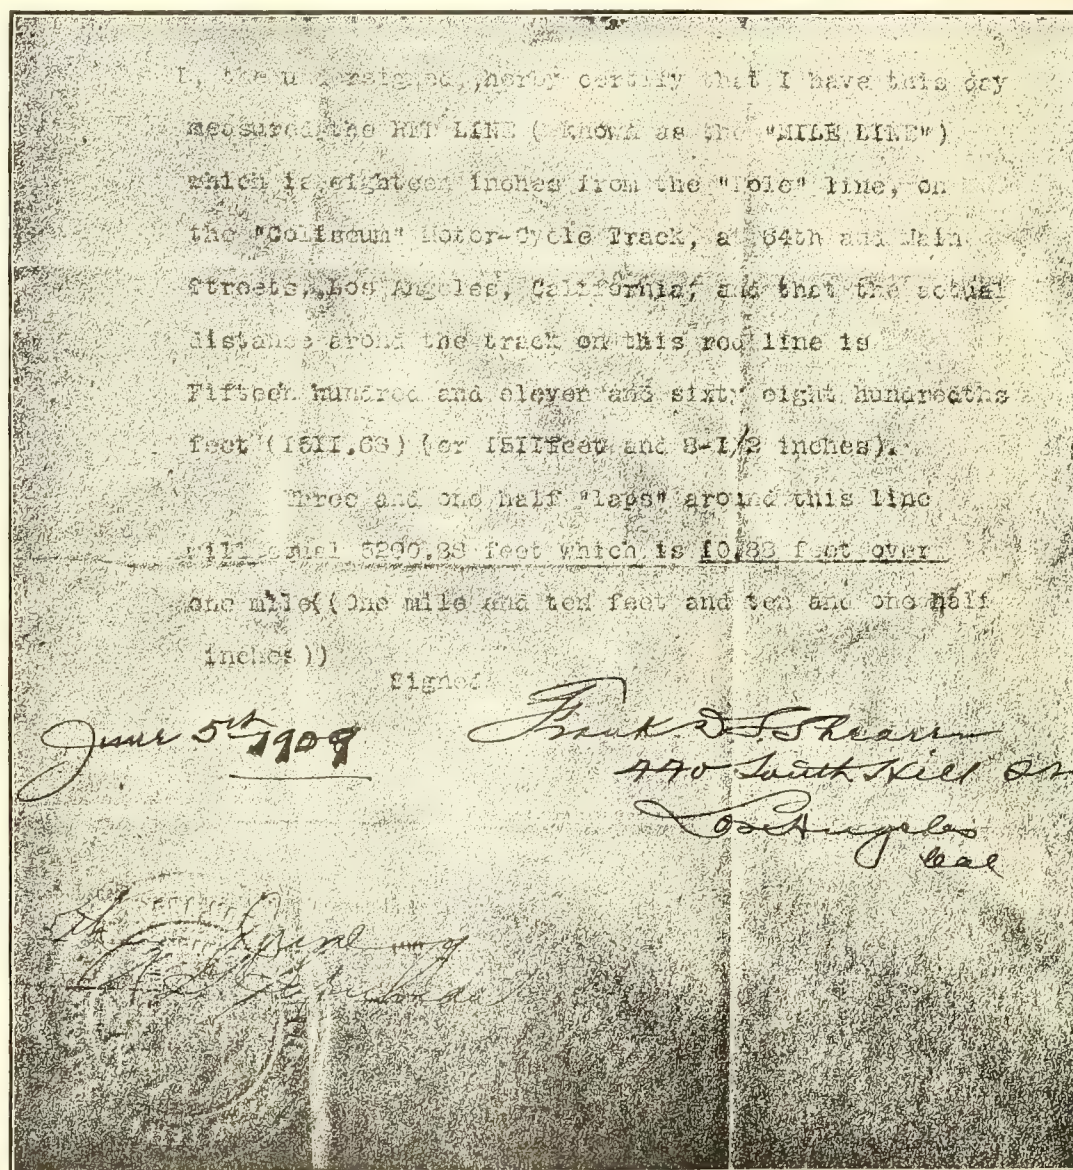 I, the undersigned,,herby certify that I have this day
measured the RED LINE ( known as the "MILE LINE")
which is eighteen inches from the "Pole" line, on
the "Coliseum" Motor-Cycle Track, at 34th and Main
Streets, Los Angeles, California, and that the actual
distance arond the track on this red line is
Fifteen hundred and eleven and sixty eight hundredths
feet (I5II.68) (or I5IIfeet and 8-I/2 inches).
Three and one half "laps" around this line
will equal 5290.88 feet which is I0.88 feet over
one mile((One mile and ten feet and ten and one half
inches))
Signed
June 5th 1909
Frank D. S. Shearer
440 South Hill St
Los Angeles
Cal